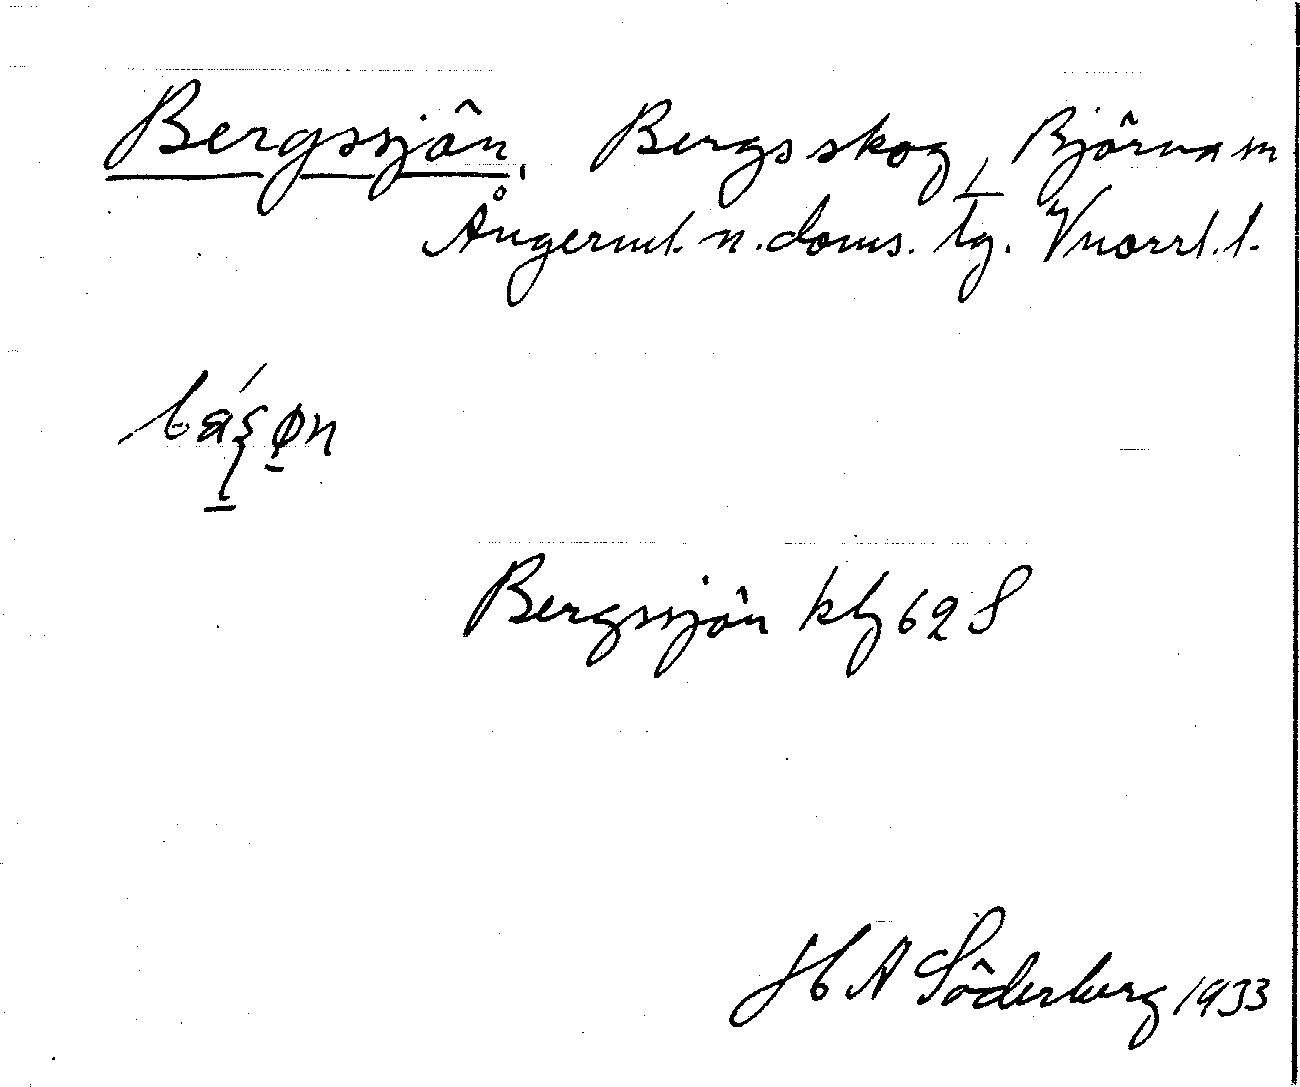 Bergssjön. Bergsskog, Björna sn
Ångerml. n. doms. tg. Vnorrl. l.
Bergssjön kbl 62 S
H A Söderberg 1933